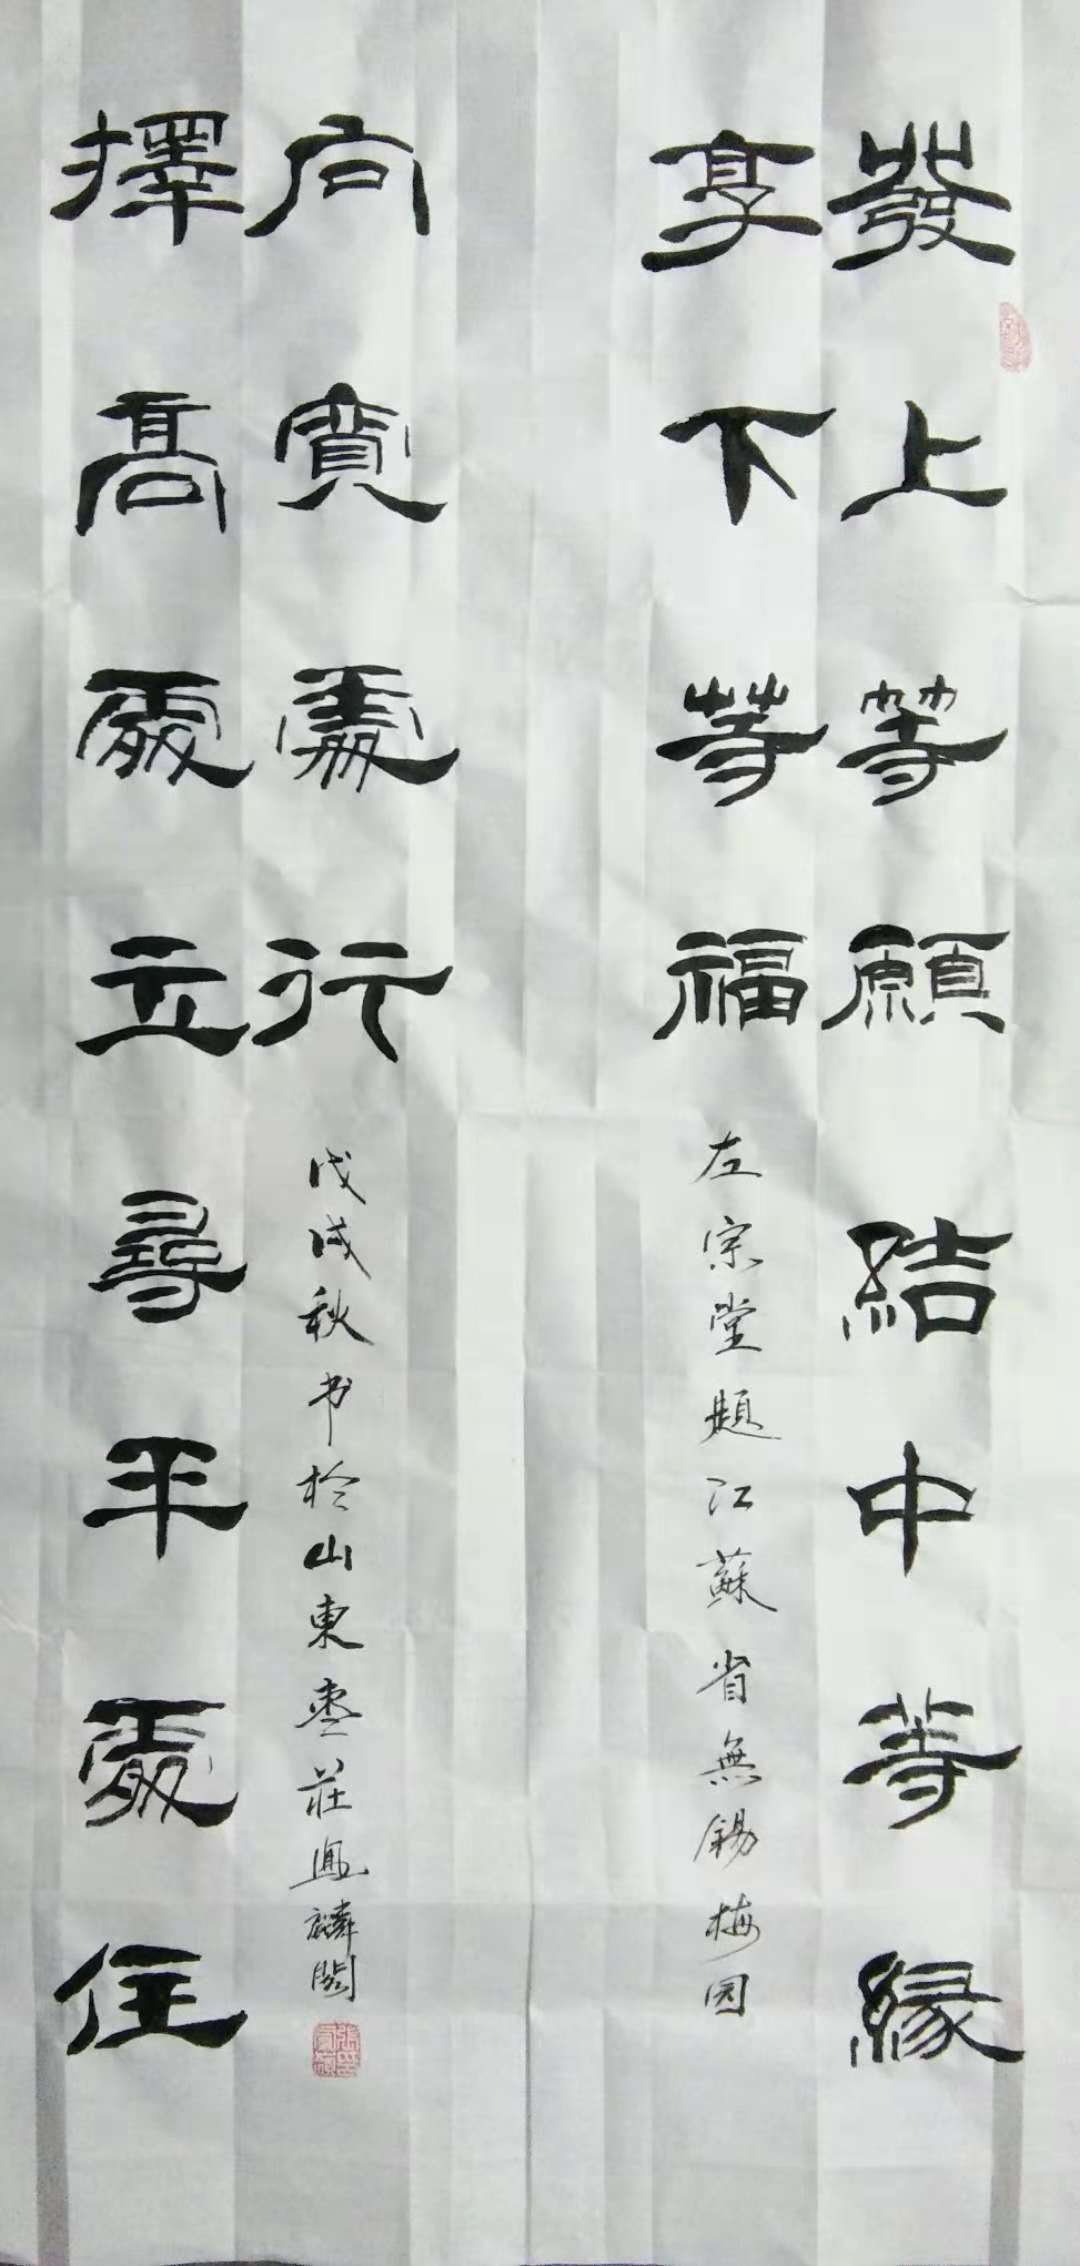 發上等願結中等緣
享下等福
左宗堂題江蘇省無錫梅园
擇高處立尋平處住
向寬處行
戊戌秋书於山東枣莊鳳麟閣